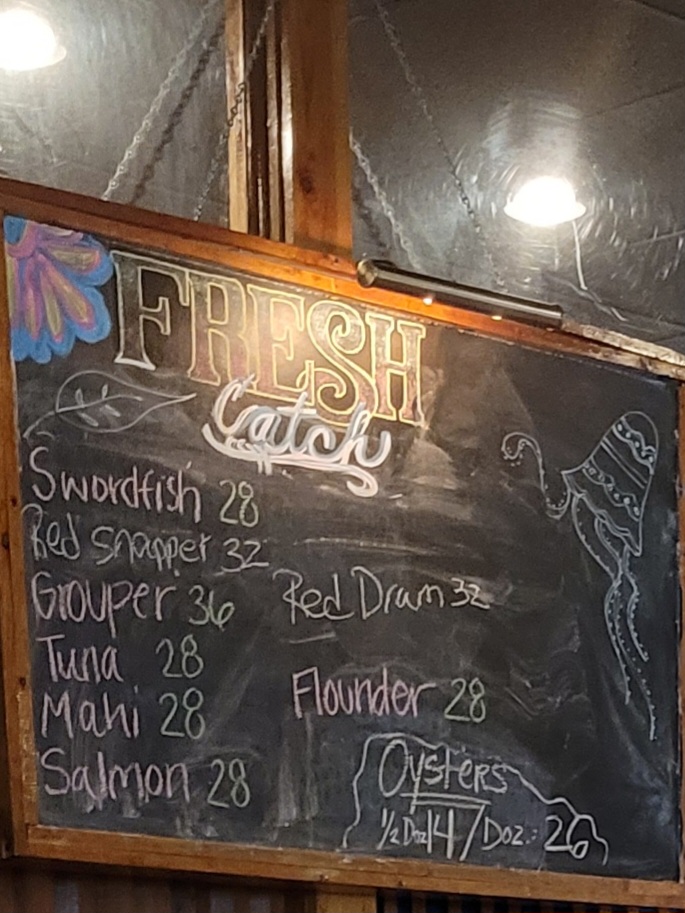 FRESH
Catch
Swordfish 28
Red Snapper 32
Grouper 36
Red Drum 32
Tuna 28
Mahi 28
Flounder 28
Salmon 28
Oysters
1/2 Doz 14 / Doz.: 26